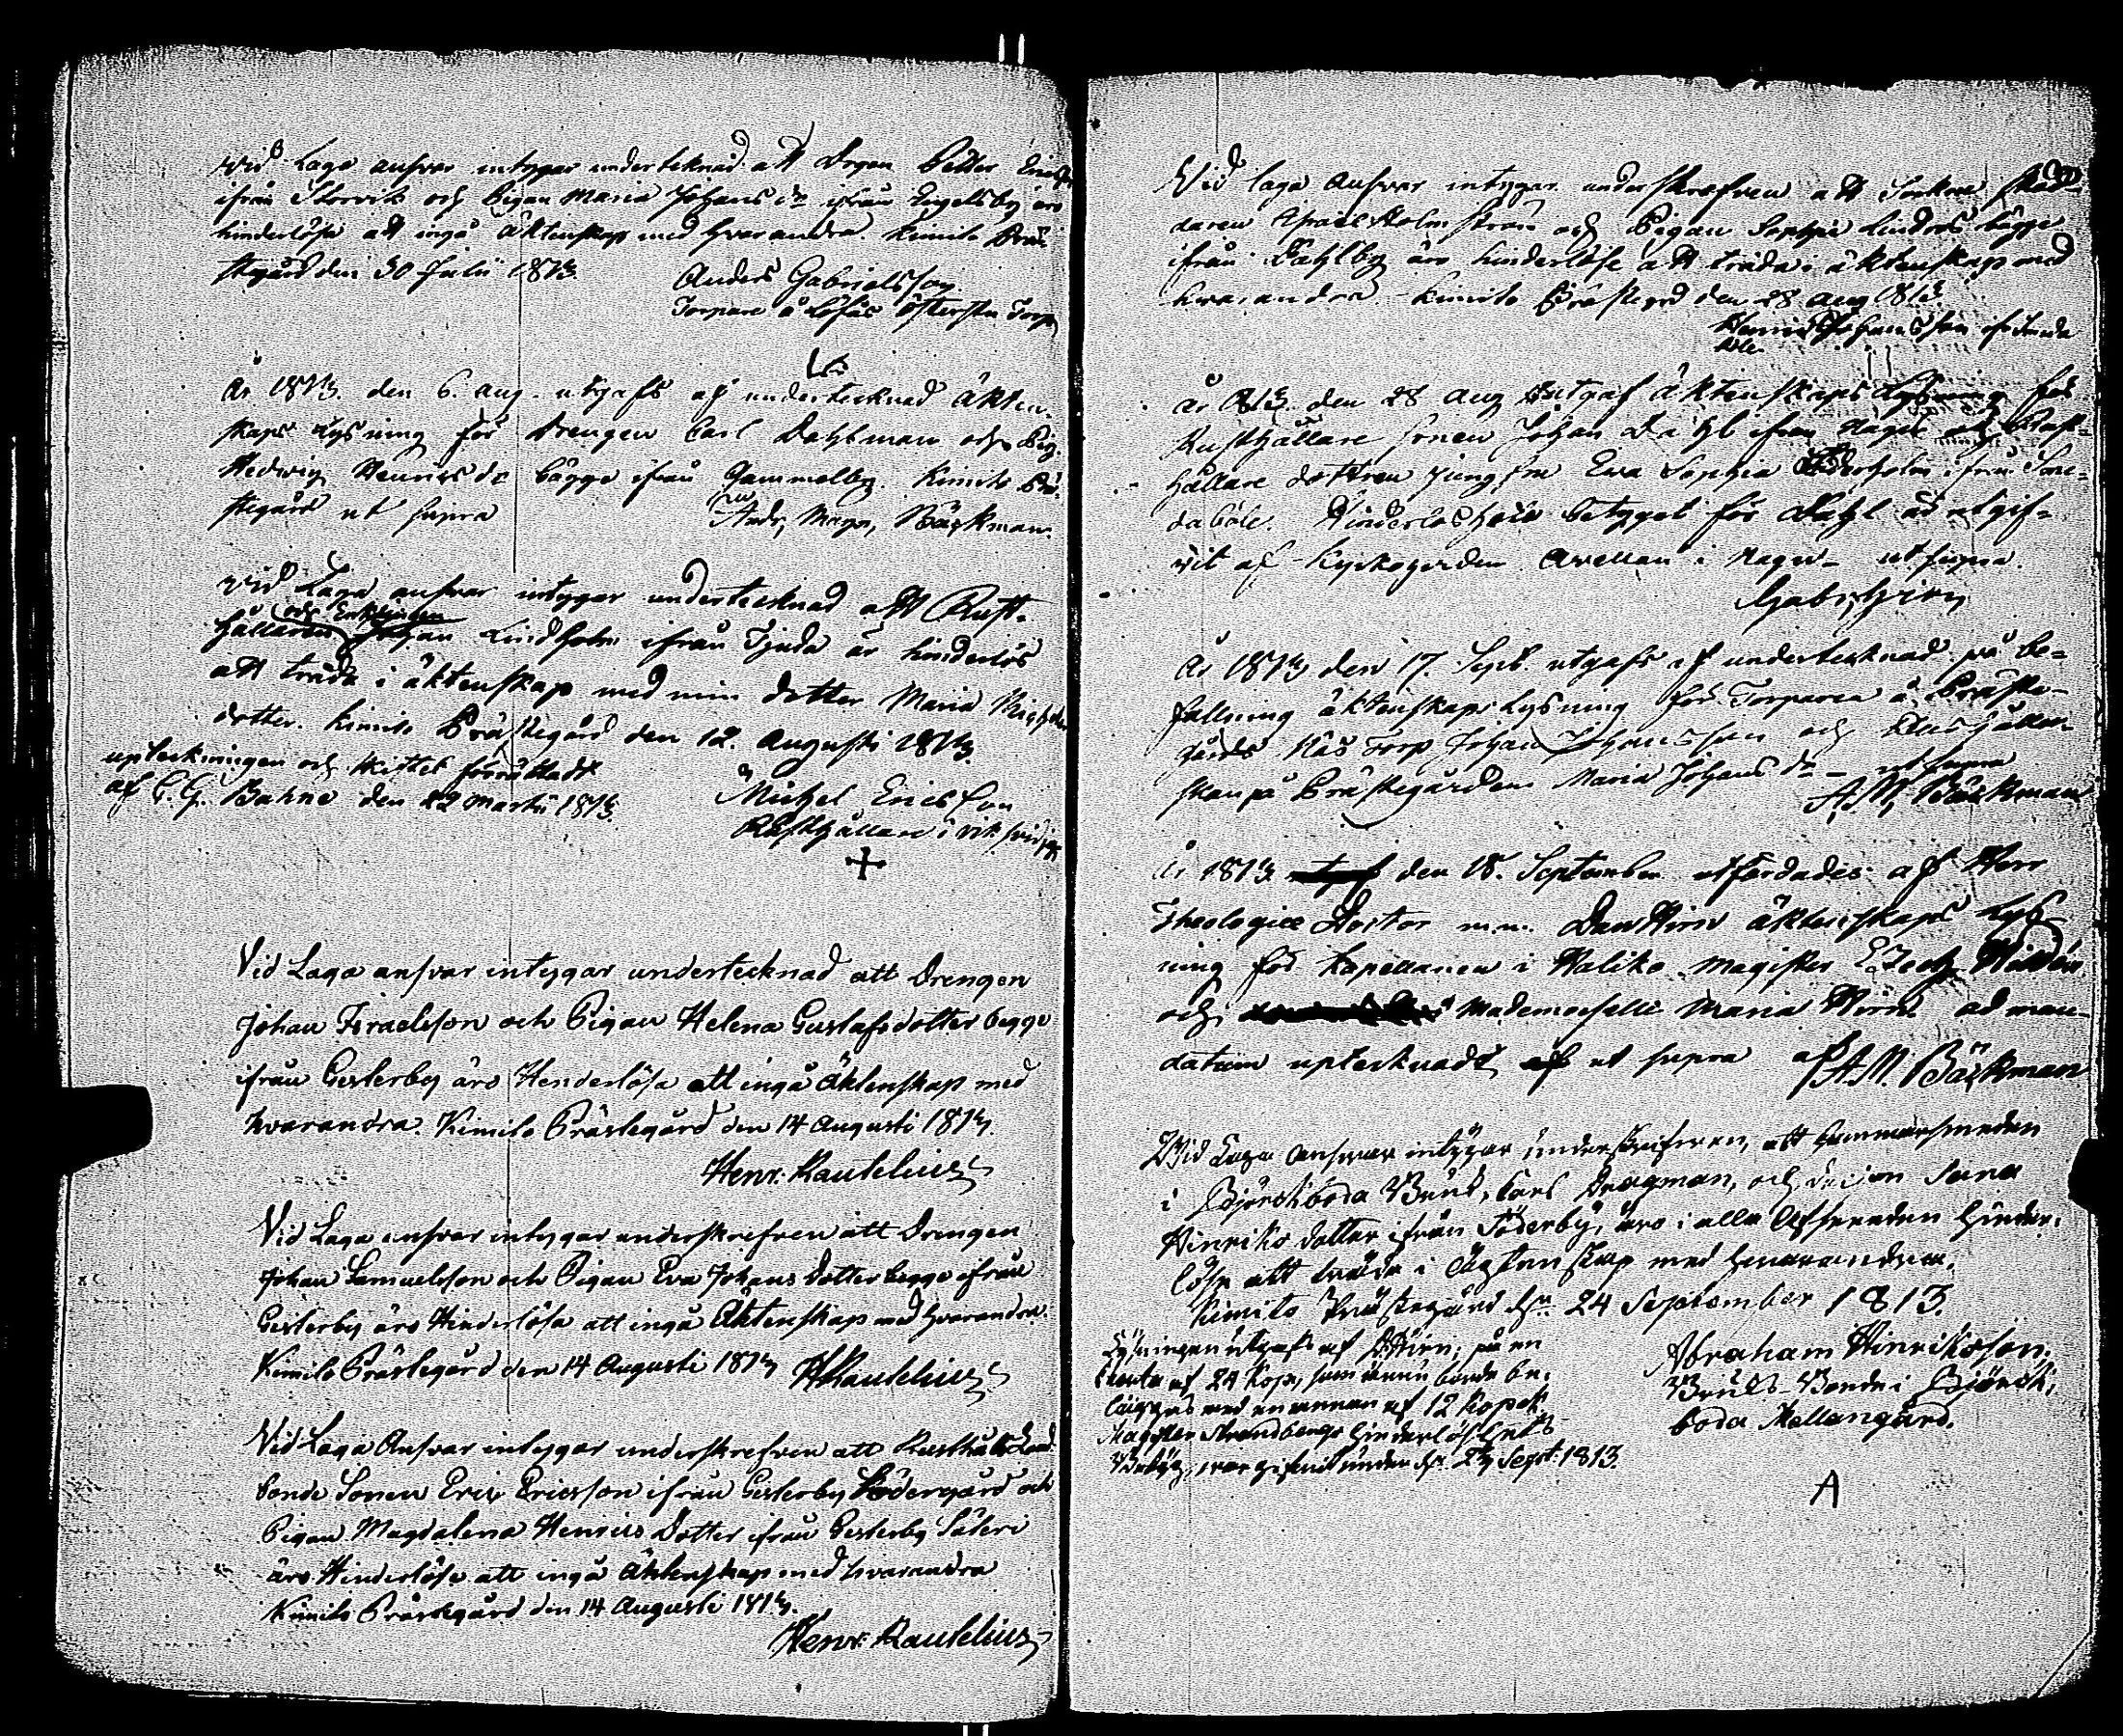 Vid Laga ansvar intygar undertecknad att Drgen Petter Ericss
ifrån Storvik och Pigan Maria Johans dr ifrån Engelsby äro
hinderlösa att ingå Äktenskap med hvarandra. Kimito Prä-
stegård den 30 Julii 1813.
Anders Gabrielsson
Torpare å Löfås Östersta Torp
År 1813. den 6. Aug. utgafs af undertecknad Äkten-
skaps Lysning för Drengen Carl Dahlman och Pig.
Hedwig Henrics dr bägge ifrån Gammelby. Kimito Prä-
stegård ut supra
Andr. Magn. Bäckman.
Vid Laga ansvar intygar undertecknad att Rust-
och Enklingen
hållaren Johan Lindholm ifrån Tjuda är hinderlös
att träda i äktenskap med min dotter Maria Michels
dotter. Kimito Prästegård den 12. Augusti 1813.
upteckningen och skiftet förrättadt
af C. G. Bahne den 22 Martii 1813.
Michel Ericsson
Rusthållare i
Vid Laga ansvar intygar undertecknad att Drengen
Johan Israelsson och Pigan Helena Gustafsdotter begge
ifrån Gesterby äro Henderlösa att ingå Äktenskap med
hvarandra. Kimito Prästegård den 14 Augusti 1813.
Henr. Rautelius
Vid Laga ansvar intygar underskrefven att Drengen
Johan Samuelsson och Pigan Eva Johans Dotter begge ifrån
Gesterby äro Hinderlösa att ingå Äktenskap med hvarandra.
Kimito Prästegård den 14 Augusti 1813
HRautelius
Vid Laga Ansvar intygar underskrefven att Rusthålls Land-
bonde Sonen Eric Ericsson ifrån Gesterby Södergård och
Pigan Magdalena Henrics Dotter ifrån Gesterby Säteri
äro Hinderlösa att ingå Äktenskap med hvarandra
Kimito Prästegård den 14 Augusti 1813.
Henr. Rautelius
Vid laga Ansvar intygar underskrefven att Sockne skräd-
daren Holmström och Pigan Sophia Lindros bägge
ifrån Dahlby äro hinderlöse att träda i äktenskap med
hvarandra. Kimito Prästegrd den 28 Aug 1813.
Johansson
År 1813. den 28 Aug utgaf Äktenskaps Lysning för
Rusthållare sonen Johan Dahl ifrån Nagu och Rust-
hållare dottren Jungfru Eva Sophia ifrån
Hinderlöshets betyget för Dahl är utgif-
vit af Kyrkoherden Avellan i Nagu ut supra.
Gab. Hirn
År 1813 den 17. Sept. utgafs af undertecknad på be-
fallning äktenskaps Lysning för Torparen å Präste-
gårds Näs Torp Johan Johansson och Hushåller-
skan på Prästegården Maria Johans dr ut supra
A. M. Bäckman
År 1813 den 18. September utfärdades af Herr
Theologiæ Doctor m.m. Dan Hirn äktenskaps Lys-
ning för Kapellanen i Haliko Magister Ezech
och Mademoiselle Maria Hirn. ad man-
datum upteknadt ut supra af A. M. Bäckman
Wid Laga Answar intygar underskrifwen, att hammarsmeden
i Björckboda Bruk, Carl Dragman, och pigan Sara
Hinriks dotter ifrån Söderby, äro i alla afseenden hinder-
löse att träda i Äktenskap med hwarandra.
Kimito Prästegård den 24 September 1813.
Lysningen utgafs af DHirn; på en
Charta af 24 Kop, som ännu borde be-
läggas med en annan af 12 Kopek.
Magister Strandbergs hinderlöshets
Betyg, war gifwit under den 23 Sept. 1813.
Abraham Hinriksson.
Bruks-Bonde i Björck-
boda Mellangård.
A